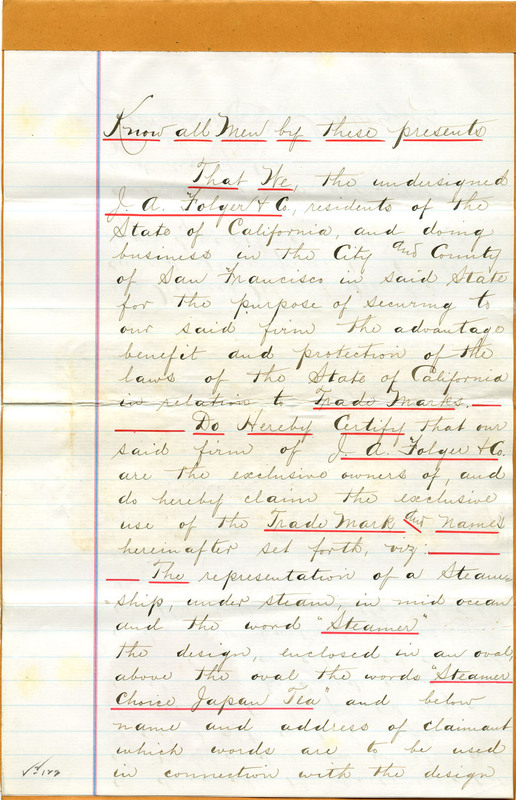 Know all Men by these presents
That We, the undersigned
J. A. Folger & Co., residents of the
State of California, and doing
business in the City and County
of San Francisco in said State
for the purpose of securing to
our said firm the advantage
benefit and protection of the
laws of the State of California
in relation to Trade Marks.
Do Hereby Certify that our
said firm of J. A. Folger & Co.
are the exclusive owners of, and
do hereby claim the exclusive
use of the Trade Mark and Names
hereinafter set forth, viz:
The representation of a Steam=
=ship, under steam, in mid ocean
and the word "Steamer"
the design, enclosed in an oval,
above the oval the words "Steamer
Choice Japan Tea" and below
name and address of claimant
which words are to be used
in connection with the design